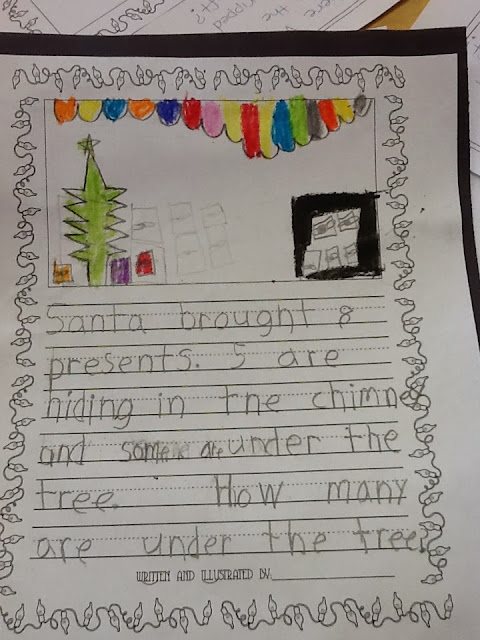 Santa brought 8
presents. 5 are
hiding in tne chimn
and some are under the
tree. How many
are under the tree
WRITTEN AND ILLUSTRATED BY: